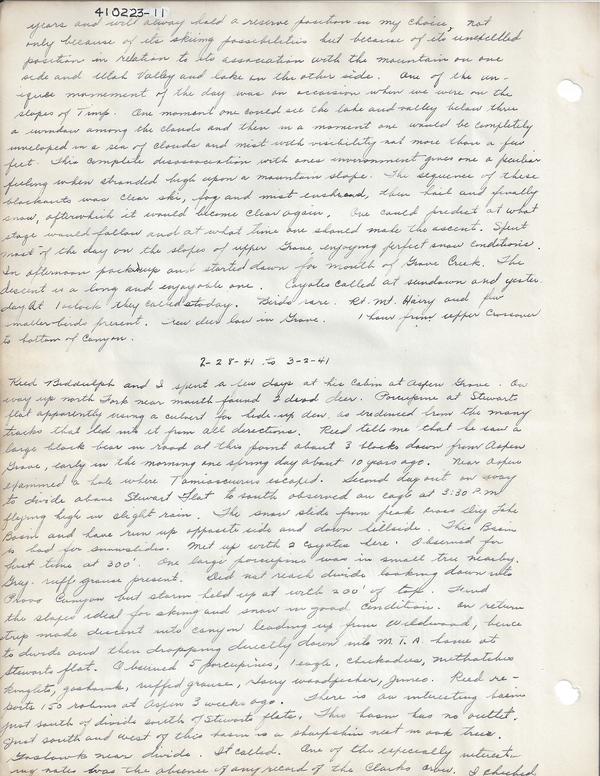 410223-11
years and will alway hold a reserve position in my choice, not
only because of its skiing possibilities but because of its unexcelled
position in relation to its association with the mountain on one
side and Utah Valley and lake on the other side. One of the un-
ique movement of the day was an occasion when we were on the
slopes of Timp. One moment one could see the lake and valley below thru
a window among the clouds and then in a moment one would be completely
enveloped in a sea of clouds and mist with visibility not more than a few
feet. This complete disassociation with ones environment gives one a peculiar
feeling when stranded high upon a mountain slope. The sequence of these
blackouts was clear ski, fog and mist enshroud, then hail and finally
snow, afterwhich it would become clear again. One could predict at what
stage would follow and at what time one should make the ascent. Spent
most of the day on the slopes of upper Grove enjoying perfect snow conditions.
In afternoon packed up and started down for mouth of Grove Creek. The
descent is a long and enjoyable one. Coyotes called at sundown and yester
day. At 1 oclock they called today. Birds rare. Rt. Mt. Hairy and few
smaller birds present. Few deer low in Grove. 1 hour from upper Crossover
to bottom of Canyon.
2-28-41 to 3-2-41
Reed Biddulph and I spent a few days at his cabin at Aspen Grove. On
way up north Fork near mouth found 2 dead deer. Porcupine at Stewarts
flat apparently using a culvert for hide-up den as evidenced from the many
tracks that led into it from all directions. Reed tells me that he saw a
large black bear in road at this point about 3 blocks down from Aspen
Grove, early in the morning one spring day about 10 years ago. Near Aspen
examined a hole where Tamiasciurus escaped. Second day out on way
to divide above Stewart Flat to south observed an eagle at 3:30 P.M
flying high in slight rain. The snow slide from peak cross Dry Lake
Basin and have run up opposite side and down hillside. This Basin
is bad for snowslides. Met up with 2 coyotes here. Observed for
first time at 300'. One large porcupine was in small tree nearby.
Gray ruff grouse present. Did not reach divide looking down into
Provo Canyon but storm held up at with 200' of top. Found
the slopes ideal for skiing and snow in good condition. On return
trip made descent into canyon leading up from Wildwood, hence
to divide and then dropping directly down into M.I.A. home at
Stewarts flat. Observed 5 porcupines, 1 eagle, chickadees, nuthatches
kinglets, goshawk, ruffed grouse, Hairy woodpecker, Juncos. Reed re-
ports 150 robins at Aspen 3 weeks ago. There is an interesting basin
just south of divide south of Stewarts flats. This basin has no outlet.
Just south and west of this basin is a sharpshin nest in oak tree.
Goshawk near divide. It called. One of the especially interest-
ing notes was the absence of any record of the Clarks crow. I checked